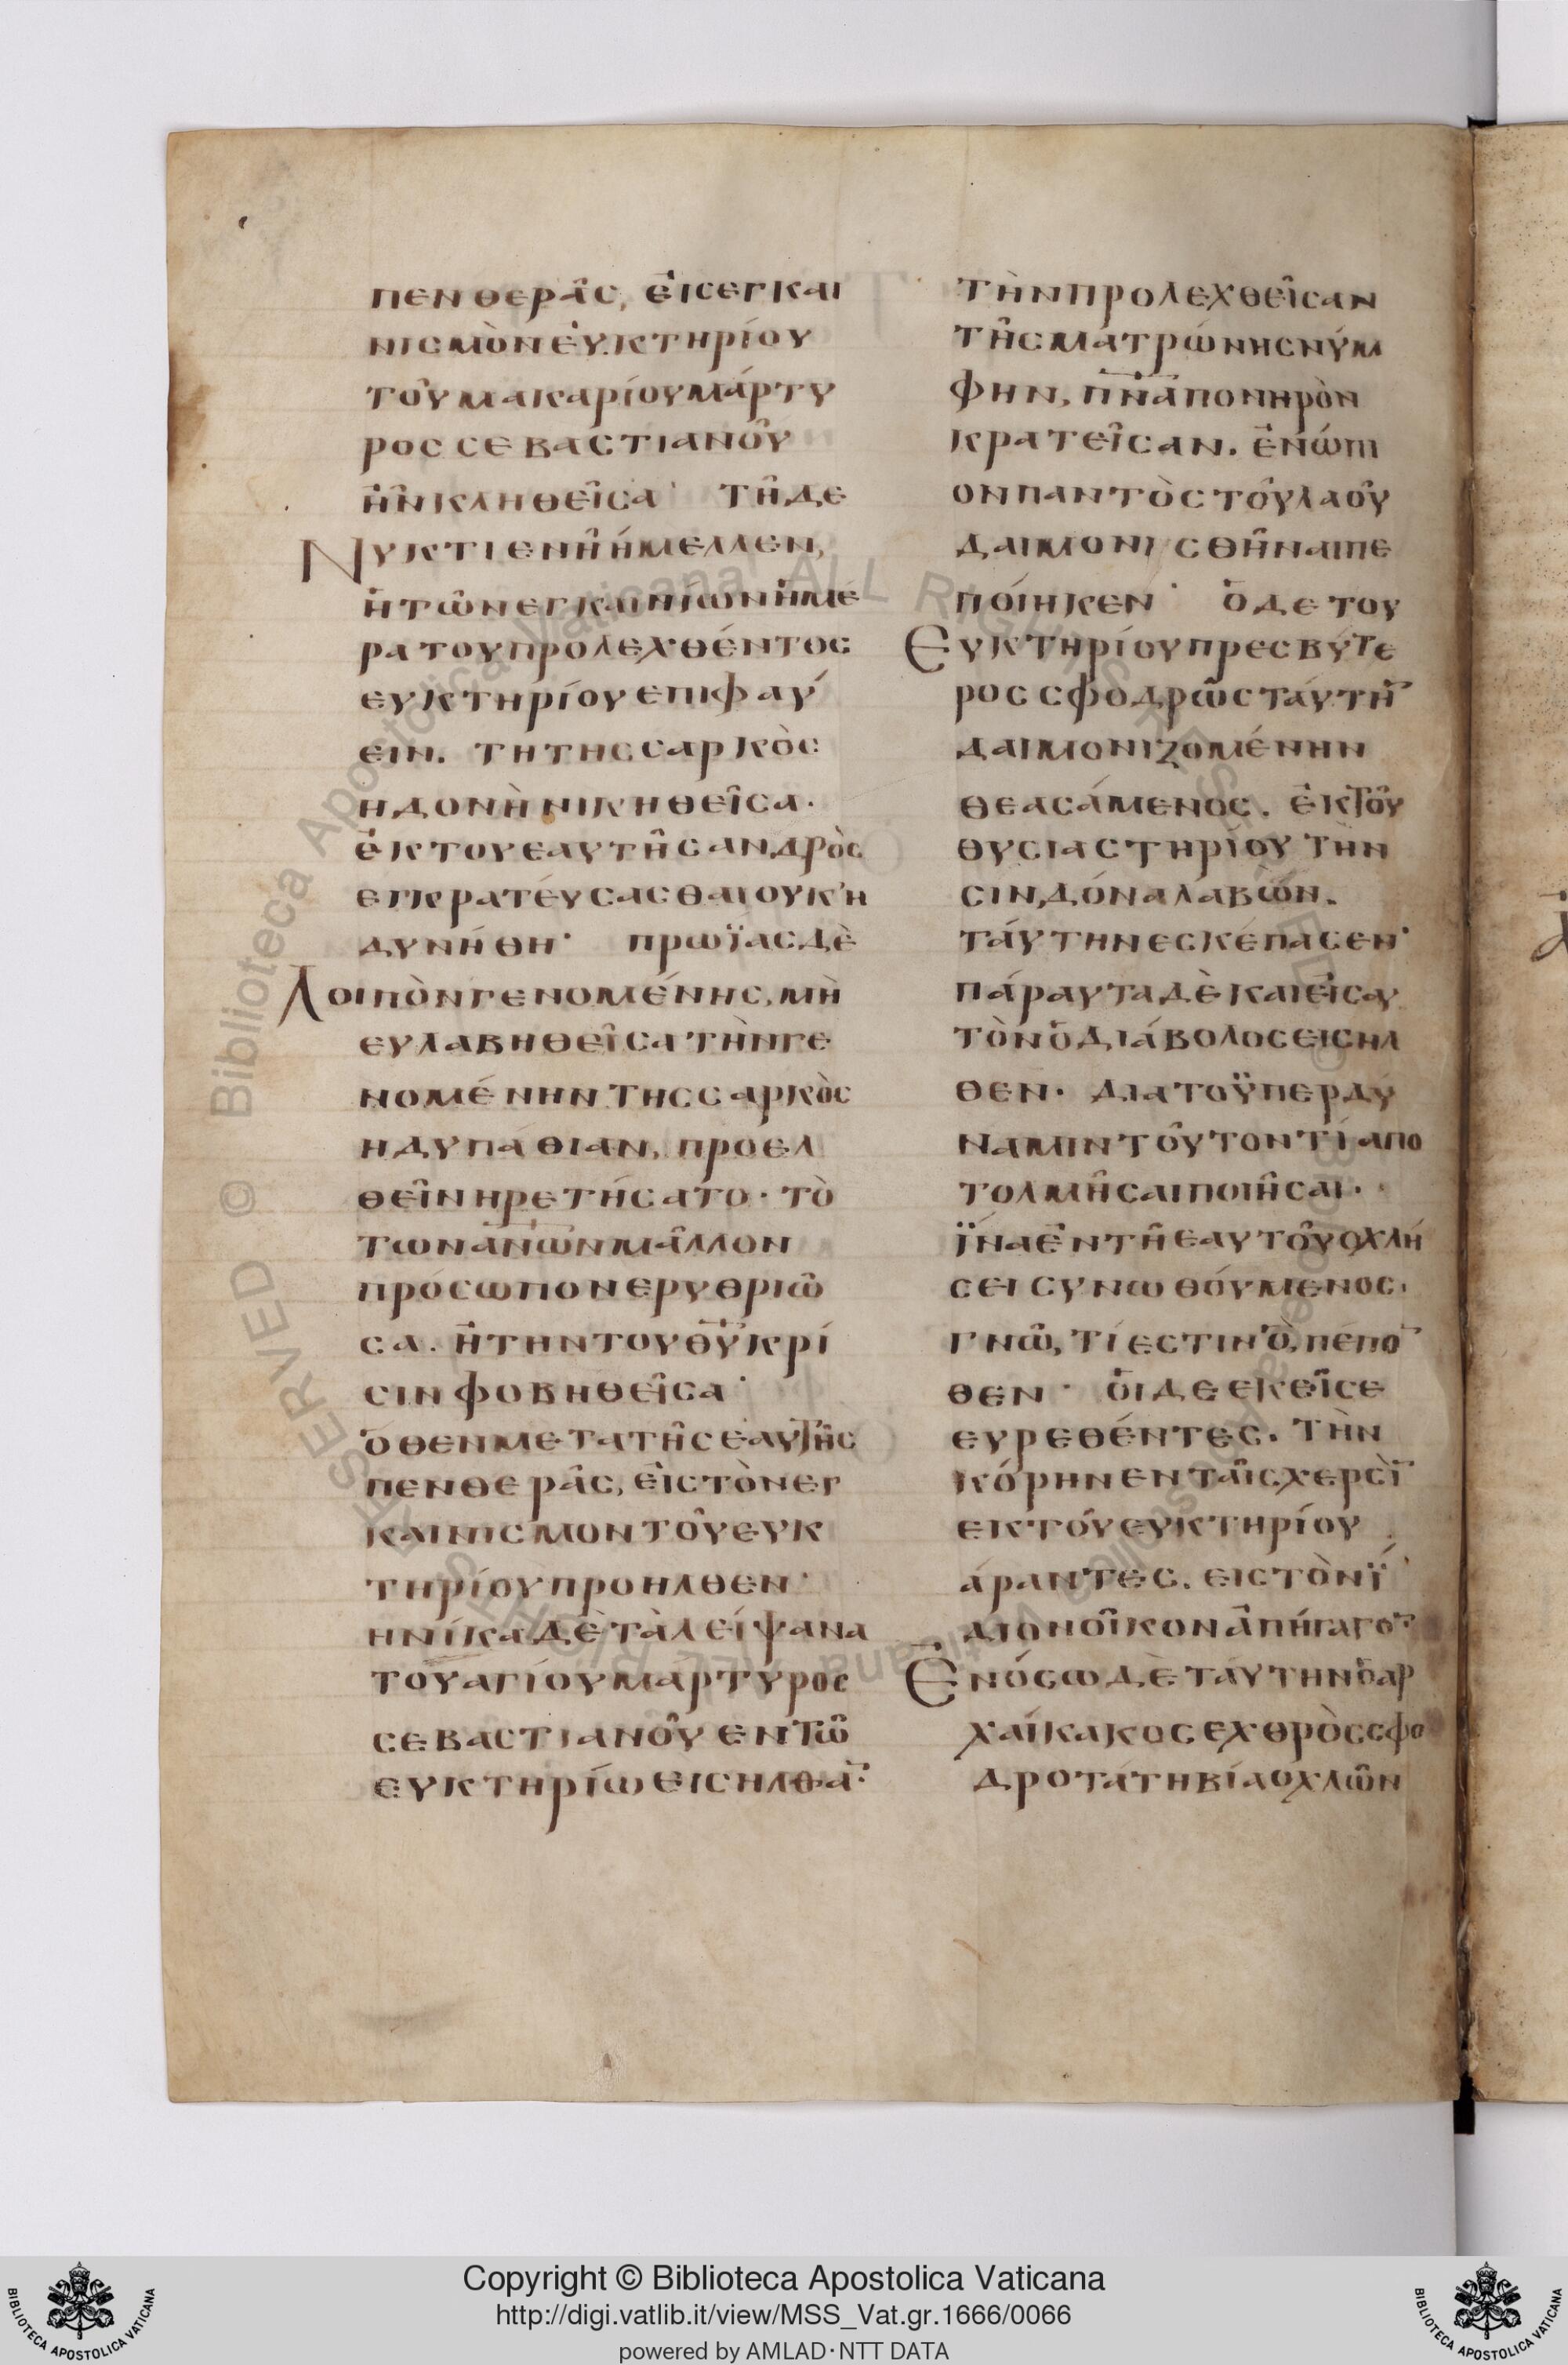 πενθερᾶς, εἰσεγκαι
νισμὸνἐυκτηρίου
τοῦμακαρίουμάρτυ
ροςσεβαστιανοῦ
ἦνκληθεῖσα· τῆδε
Νυκτιενῆἤμελλεν,
ἡτῶνεγκαινίωνἡμέ
ρατουπρολεχθέντος
ευκτηρίουεπιφαύ
ειν. τητηςσαρκὸς
ηδονὴνικηθεῖσα.
ἐκτουεαυτῆςανδρὸς
εγκρατέυσασθαιουκἠ
δυνήθη· πρωϊαςδὲ
Λοιπὸνγενομένης, μὴ
ευλαβηθεῖσατὴνγε
νομένηντηςσαρκὸς
ηδυπάθιαν, προελ
θεῖνηρετήσατο· τὸ
τωνανωνμᾶλλον
πρόσωπονερυθριῶ
σα. ἢτηντουθυκρί
σινφοβηθεῖσα·
ὅθενμετατῆςεαυτῆς
πενθερᾶς, εἰςτὸνεγ
καινισμοντοῦευκ
τηρίουπροηλθεν·
ηνίκαδὲτὰλείψανα
τουαγίουμαρτύρος
σεβαστιανοῦεντῶ
ευκτηρίωεισηλθα̅·
τὴνπρολεχθεῖσαν
τῆςματρώνηςνύμ
φην, πναπονηρὸν
κρατεῖσαν. ἐνώπι
ονπαντὸςτοῦλαοῦ
δαιμονισθῆναιπε
πόιηκεν· ὁδετου
Ευκτηρίουπρεσβύτε
ροςσφοδρῶςτάυτη̅
δαιμονιζομένην
θεασάμενος. ἐκτοῦ
θυσιαστηρίουτὴν
σινδόναλαβὼν.
τάυτηνεσκέπασεν·
πάραυταδὲκαιεἰσαυ
τὸνὁδιάβολοςεισηλ
θεν· διατοϋπερδύ
ναμιντοῦτοντίαπο
τολμῆσαιποιῆσαι·
ϊναἐντῆεαυτοῦοχλή
σεισυνωθόυμενος,
γνῶ, τίεστινὃ,πέπο̅
θεν· ὁιδεεκεῖσε
ευρεθέντες. τὴν
κόρηνενταῖςχερσὶ̅
εκτοῦευκτηρίου
άραντες. ειςτὸνϊ
διονοῖκονἀπήγαγο̅·
Ἐνόσωδὲτάυτηνὁαρ
χαίκακοςεχθρὸςσφο
δροτάτηβίαοχλῶν
Copyright © Biblioteca Apostolica Vaticana
http://digi.vatlib.it/view/MSS_Vat.gr.1666/0066
powered by AMLAD·NTT DATA
BIBLIOTECA APOSTOLICA VATICANA
BIBLIOTECA APOSTOLICA VATICANA